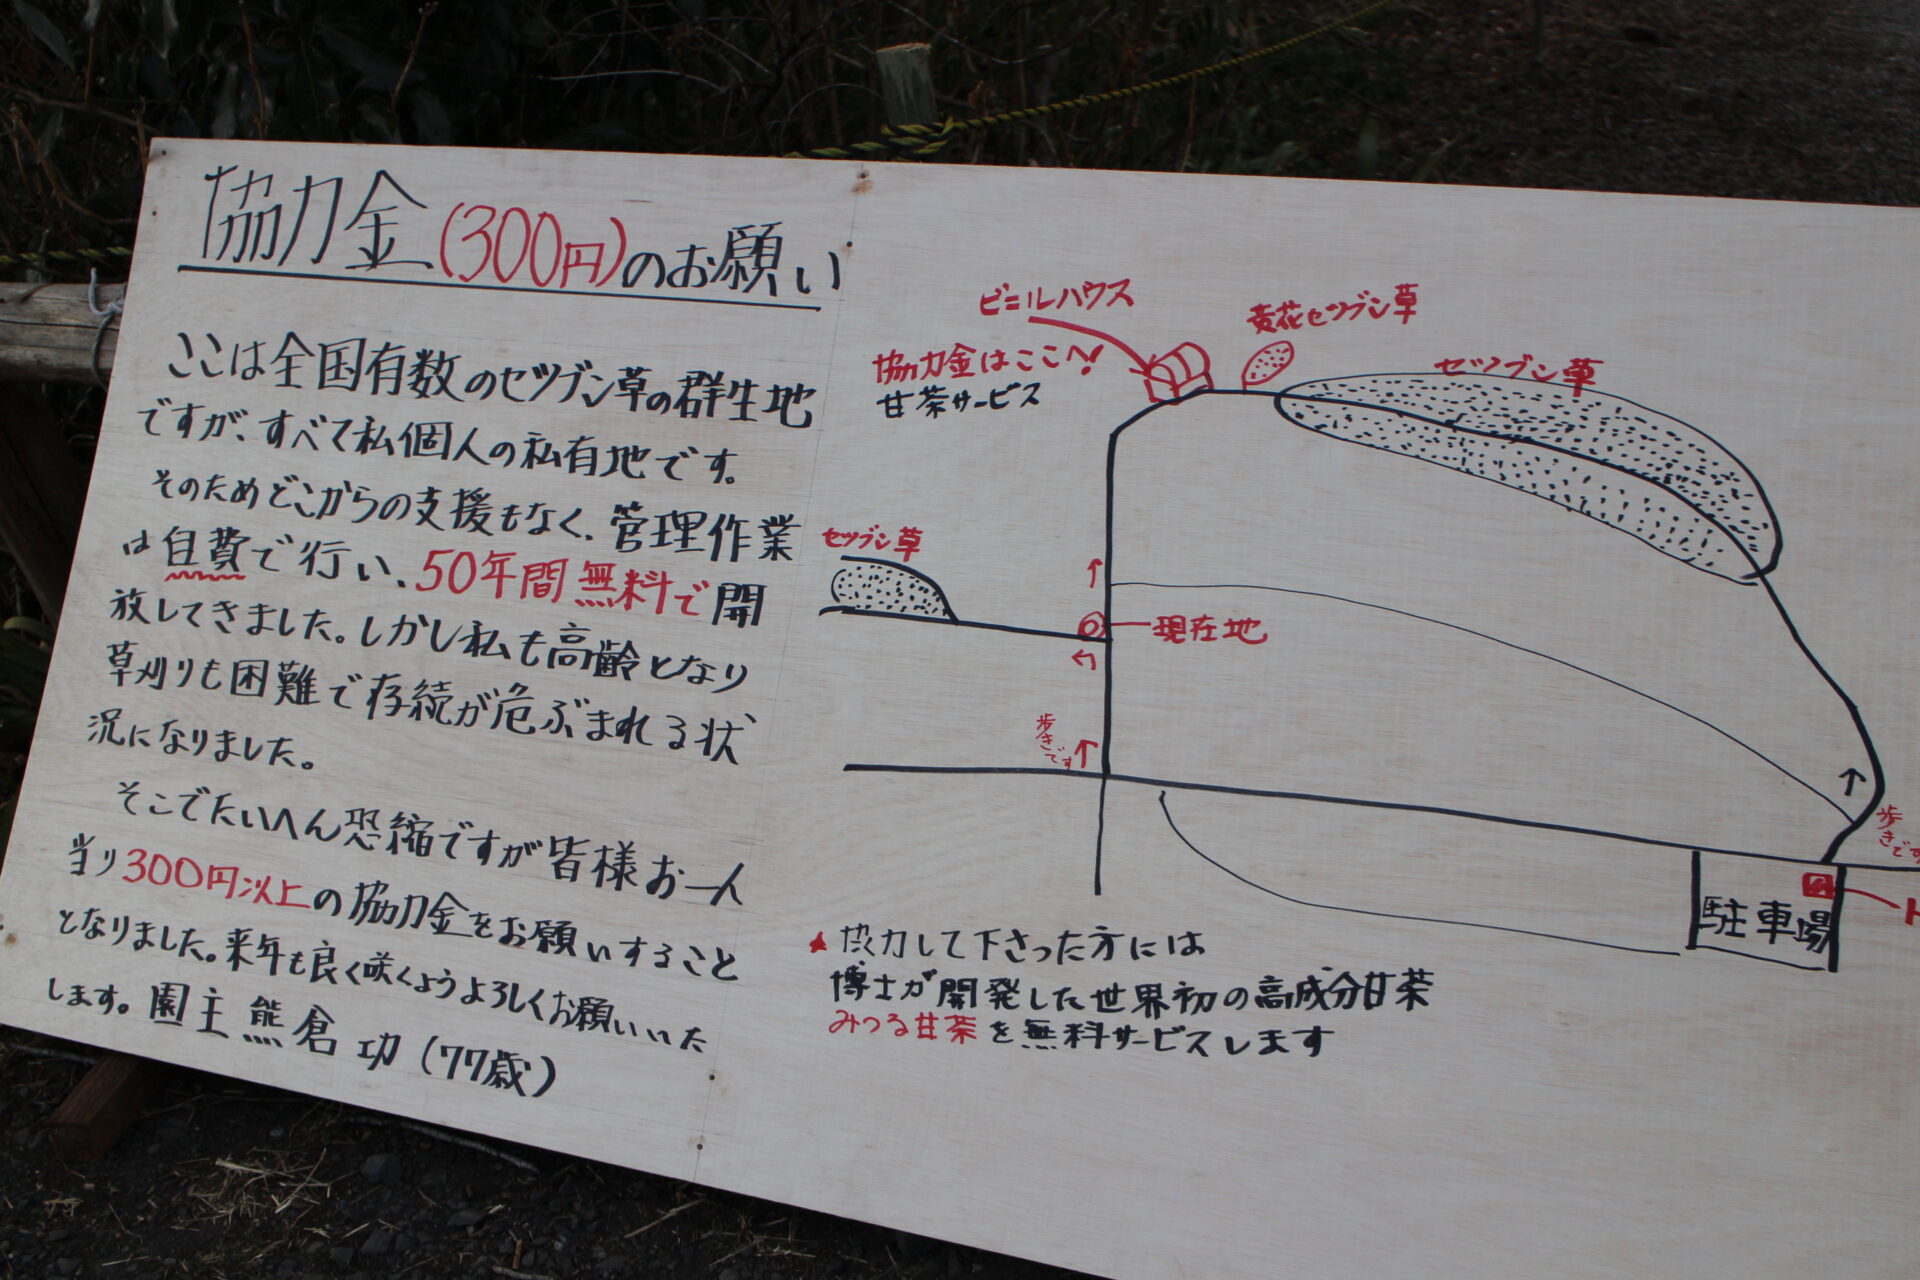 協力金(300円)のお願い
ここは全国有数のセツブン草の群生地
ですが、すべて私個人の私有地です。
そのためどこからの支援もなく、管理作業
は自費で行い、50年間無料で開
放してきました。しかし私も高齢となり
草刈りも困難で存続が危ぶまれる状
況になりました。
そこでたいへん恐縮ですが皆様お一人
当り300円以上の協力金をお願いすること
となりました。来年も良く咲くようよろしくお願いいた
します。園主 熊倉 功(77歳)
ビニルハウス
黄花セツブン草
協力金はここへ!
甘茶サービス
セツブン草
セツブン草
現在地
歩きです
歩きです
駐車場
協力して下さった方には
博士が開発した世界初の高成分甘茶
みつる甘茶を無料サービスします